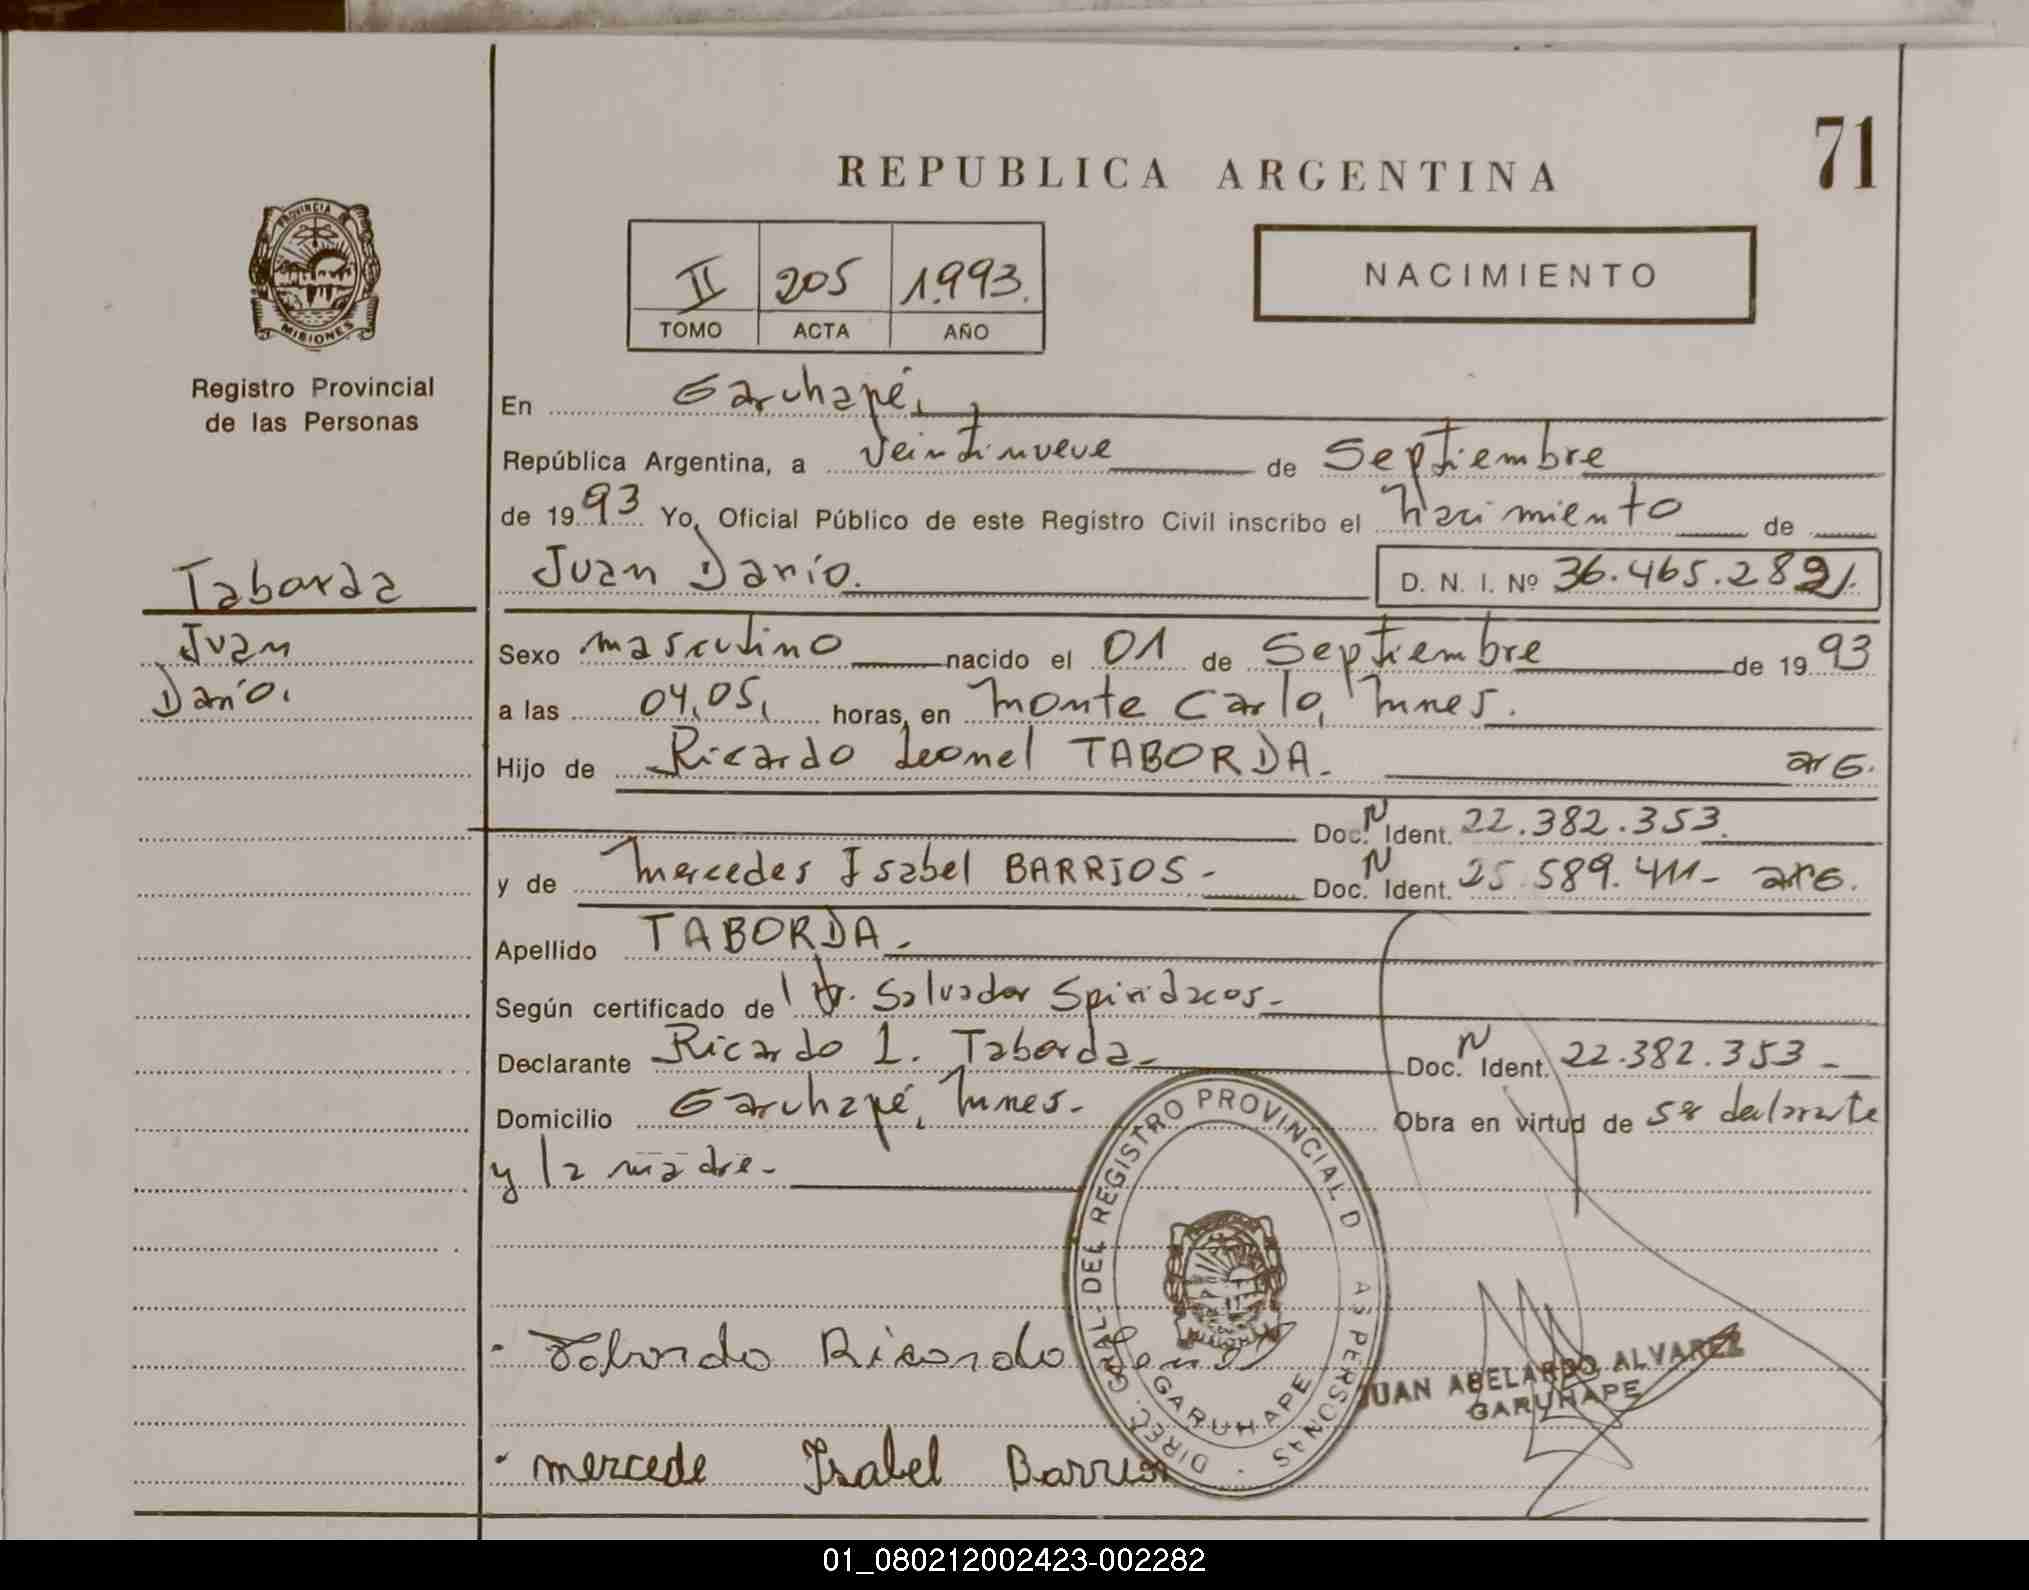 71
REPUBLICA ARGENTINA
PROVINCIA
MISIONES
Registro Provincial
de las Personas
II 205 1.993.
TOMO ACTA AÑO
NACIMIENTO
En Garuhapé,
República Argentina, a Veintinueve de Septiembre
de 1993 Yo, Oficial Público de este Registro Civil inscribo el Nacimiento de
Juan Darío. D. N. I. Nº 36.465.282/.
Taborda
Juan
Darío.
Sexo masculino nacido el 01 de Septiembre de 1993
a las 04,05, horas, en Monte Carlo, Mnes.
Hijo de Ricardo Leonel TABORDA. arg.
Doc. N Ident. 22.382.353.
y de Mercedes Isabel BARRIOS - Doc. N Ident. 25.589.411- arg.
Apellido TABORDA -
Según certificado de Dr. Salvador Spiridacos -
Declarante Ricardo L. Taborda - Doc. N Ident. 22.382.353 -
Domicilio Garuhapé, Mnes - Obra en virtud de ser declarante
y la madre -
DIREC. GRAL. DEL REGISTRO PROVINCIAL D AS PERSONAS
GARUHAPE
Taborda Ricardo
JUAN ABELARDO ALVAREZ
GARUHAPE
mercede Isabel Barrios
01_080212002423-002282